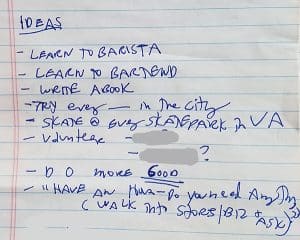 IDEAS
- LEARN TO BARISTA
- LEARN TO BARTEND
- WRITE A BOOK
- TRY every — in The City
- SKATE @ every SKATEPARK in VA
- Volunteer -
?
- DO MORE GOOD
- "HAVE AN Hour - Do you need Anything"
(WALK into STORES/BIZ + ASK)